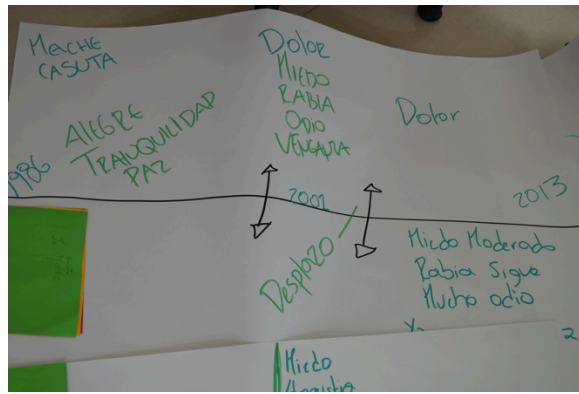 Meche
CASUTA
1986
AlEGRE
TRANQUILIDAD
PAZ
Dolor
MIEDO
RABIA
ODIO
VENGANZA
Dolor
2002
2013
Desplazo
Miedo Moderado
Rabia Sigue
Mucho odio
Miedo
Angustia
2